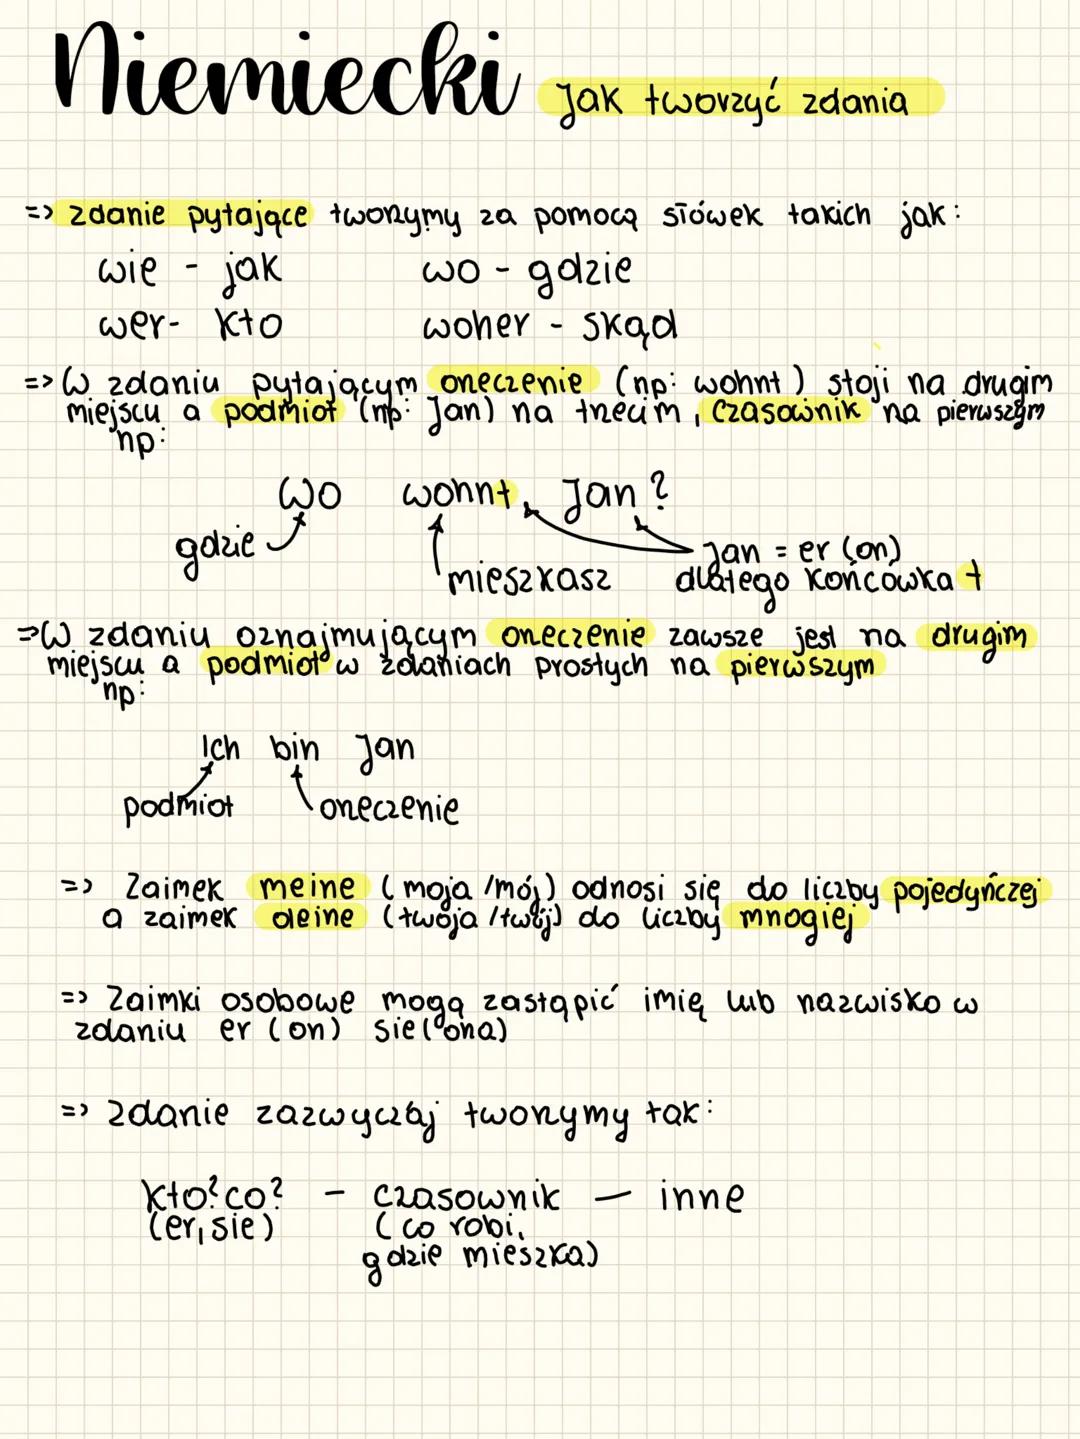 Niemiecki Jak tworzyć zdania
=> zdanie pytające tworzymy za pomocą słówek takich jak:
wie - jak wo - gdzie
wer - kto woher - skąd
=> W zdaniu pytającym orzeczenie (np: wohnt) stoji na drugim
miejscu a podmiot (np: Jan) na trzecim, czasownik na pierwszym
np:
Wo wohnt Jan?
gdzie
mieszkasz
Jan = er (on)
dlatego końcówka t
=> W zdaniu oznajmującym orzeczenie zawsze jest na drugim
miejscu a podmiot w zdaniach prostych na pierwszym
np:
Ich bin Jan
podmiot orzeczenie
=> Zaimek meine (moja /mój) odnosi się do liczby pojedyńczej
a zaimek deine (twoja /twój) do liczby mnogiej
=> Zaimki osobowe mogą zastąpić imię lub nazwisko w
zdaniu er (on) sie (ona)
=> Zdanie zazwyczaj tworzymy tak:
kto? co? - czasownik - inne
(er, sie) (co robi,
gdzie mieszka)